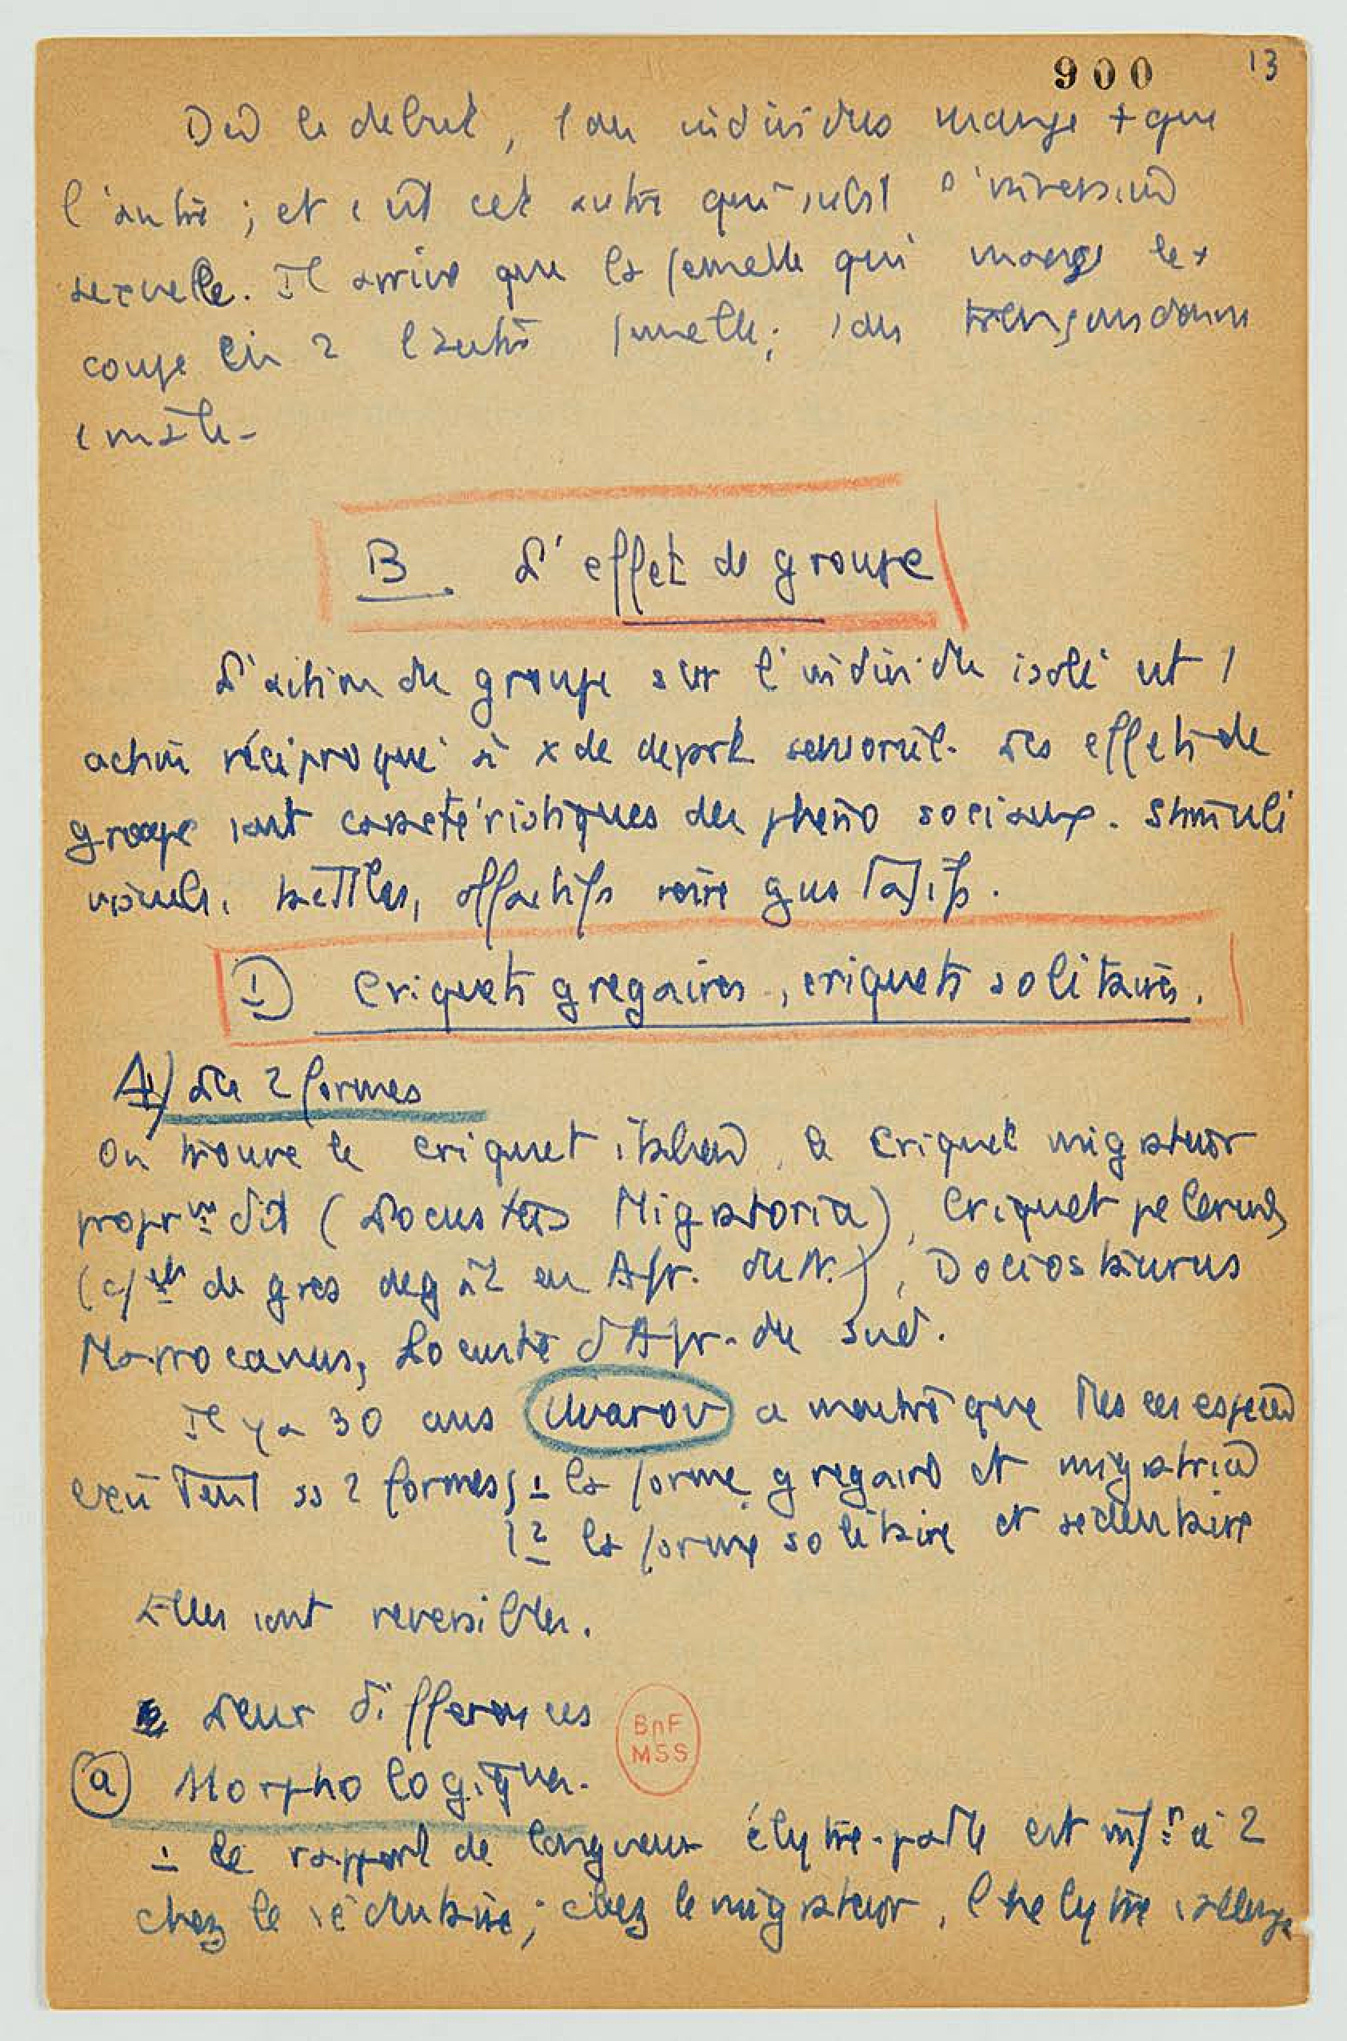 900 13
Dès le début, l'un individus mange + que
l'autre ; et c'est cet autre qui subit l'inversion
sexuelle. Il arrive que la femelle qui mange le +
coupe en 2 l'autre femelle ; les tronçons donnent
1 mâle.
B. L'effet de groupe
L'action du groupe sur l'individu isolé est 1
action réciproque à de départ sensoriel. Les effets de
groupe sont caractéristiques des phéno sociaux. Stimuli
visuels, tactiles, olfactifs voire gustatifs.
I) Criquets grégaires, criquets solitaires.
A) Les 2 formes
On trouve le criquet italien, le criquet migrateur
propr^m dit (Locustas Migratoria), Criquet pelerin
(de gros dégât en Afr. du N.), Dociostaurus
Marrocanus, Locuste d'Afr. du Sud.
Il y a 30 ans Uvarov a montré que ttes ces espèces
existent ss 2 formes : 1 la forme grégaire et migratrice
2 la forme solitaire et sédentaire
Elles sont reversibles.
Leur différences
a Morphologiques.
1 Le rapport de longueur élytre-patte est inf^r à 2
chez le sédentaire ; chez le migrateur, l'élytre s'allonge
BnF
MSS